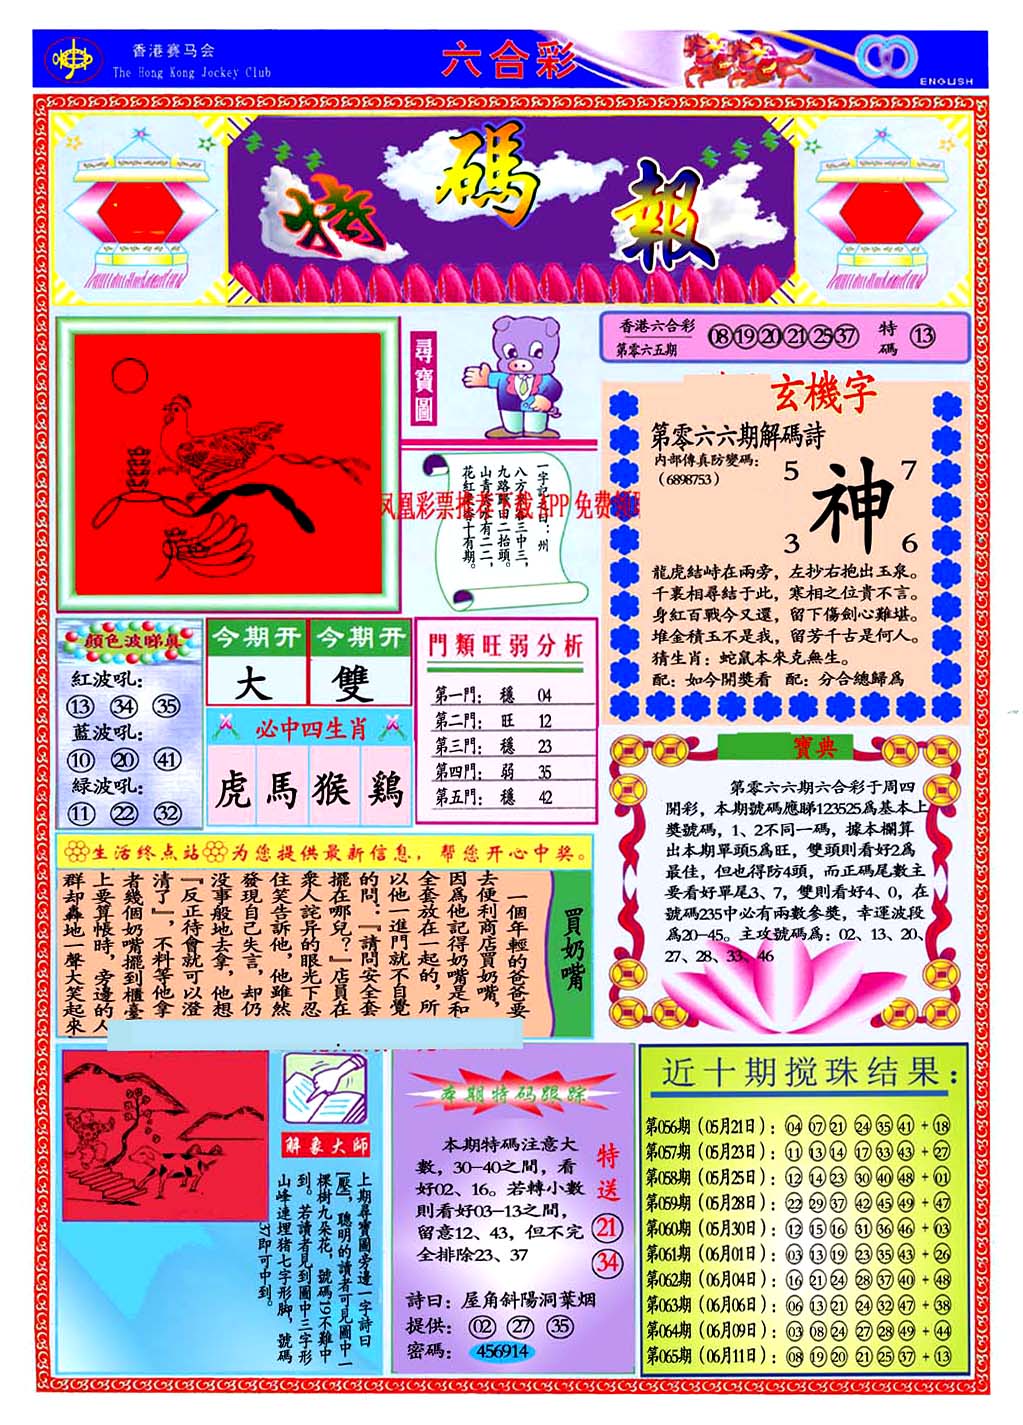 香港赛马会
The Hong Kong Jockey Club
六合彩
ENGLISH
特碼報
尋寶圖
香港六合彩
第零六五期
08 19 20 21 25 37
特碼
13
一字記之曰：州
花紅
凤凰彩票推荐下载 APP 免费
玄機字
第零六六期解碼詩
内部傳真防變碼：
（6898753）
5 7
神
3 6
龍虎結峙在兩旁，左抄右抱出玉泉。
千裏相尋結于此，寒相之位貴不言。
身紅百戰今又還，留下傷劍心難堪。
堆金積玉不是我，留芳千古是何人。
猜生肖：蛇鼠本來克無生。
配：如今開獎看 配：分合總歸爲
顔色波睇真
紅波吼：
13 34 35
藍波吼：
10 20 41
緑波吼：
11 22 32
今期开 今期开
大 雙
必中四生肖
虎 馬 猴 鷄
門類旺弱分析
第一門： 穩 04
第二門： 旺 12
第三門： 穩 23
第四門： 弱 35
第五門： 穩 42
寶典
第零六六期六合彩于周四
開彩，本期號碼應睇123525爲基本上
獎號碼，1、2不同一碼，據本欄算
出本期單頭5爲旺，雙頭則看好2爲
最佳，但也得防4頭，而正碼尾數主
要看好單尾3、7，雙則看好4、0，在
號碼235中必有兩數參獎，幸運波段
爲20-45。主攻號碼爲：02、13、20、
27、28、33、46
生活终点站 为您提供最新信息，帮您开心中奖。
買奶嘴
一個年輕的爸爸要
去便利商店買奶嘴，
因爲他記得奶嘴是和
全套放在一起的，所
以他一進門就不自覺
的問：『請問安全套
擺在哪兒？』店員在
衆人詫异的眼光下忍
住笑告訴他，他雖然
發現自己失言，却仍
没事般地去拿，他想
『反正待會就可以澄
清了』，不料等他拿
者幾個奶嘴擺到櫃臺
上要算帳時，旁邊的人
群却轟地一聲大笑起來
解象大師
上期尋寶圖旁邊一字詩曰
『壓』，聰明的讀者可見圖中一
棵樹九朵花，號碼19不難中
到。若讀者見到圖中三字形
山峰連埋猪七字形脚，號碼
37即可中到。
本期特码跟踪
本期特碼注意大
數，30-40之間，看
好02、16。若轉小數
則看好03-13之間，
留意12、43，但不完
全排除23、37
特送
21
34
詩曰：屋角斜陽洞葉烟
提供： 02 27 35
密碼： 456914
近十期搅珠结果：
第056期（05月21日）： 04 07 21 24 35 41 + 18
第057期（05月23日）： 11 13 14 17 33 43 + 27
第058期（05月25日）： 12 14 23 30 40 48 + 01
第059期（05月28日）： 22 29 37 42 45 49 + 47
第060期（05月30日）： 12 15 16 31 36 46 + 03
第061期（06月01日）： 03 13 19 23 35 43 + 26
第062期（06月04日）： 16 21 24 28 37 40 + 48
第063期（06月06日）： 06 13 21 24 32 47 + 38
第064期（06月09日）： 03 08 24 27 28 49 + 44
第065期（06月11日）： 08 19 20 21 25 37 + 13